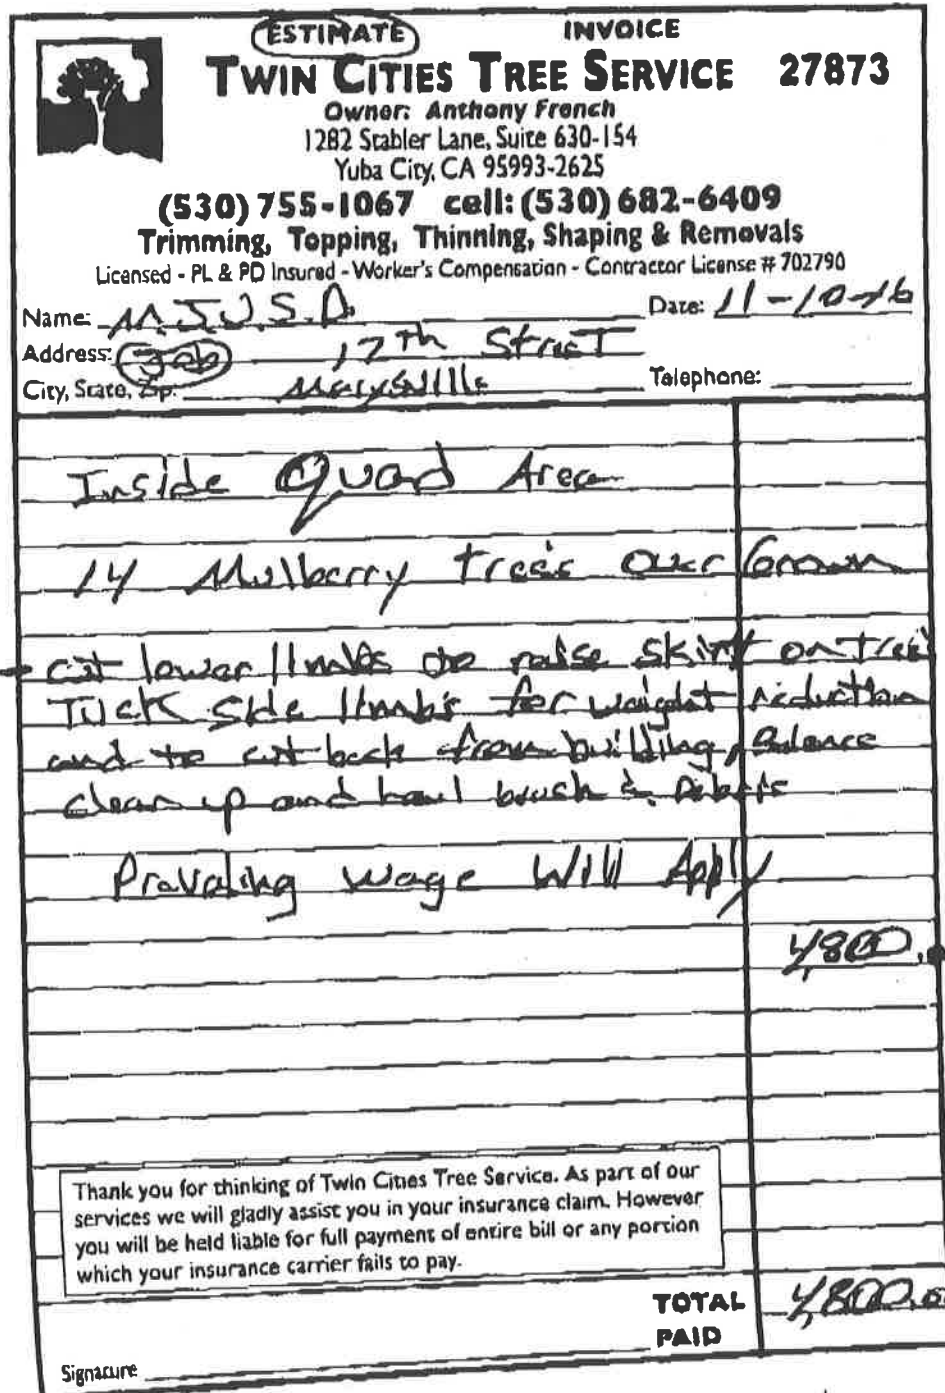 ESTIMATE INVOICE
TWIN CITIES TREE SERVICE 27873
Owner: Anthony French
1282 Stabler Lane, Suite 630-154
Yuba City, CA 95993-2625
(530) 755-1067 cell: (530) 682-6409
Trimming, Topping, Thinning, Shaping & Removals
Licensed - PL & PD Insured - Worker's Compensation - Contractor License # 702790
Name: M.J.U.S.D. Date: 11-10-16
Address: Job 17th Street
City, State, Zip: Marysville Telephone:
Inside Quad Area
14 Mulberry tree's over Grown
cut lower limbs to raise skirt on tree
Tuck side limb's for weight reduction
and to cut back from building, Balance
clean up and haul brush & Debris
Pravaling wage Will Apply
4,800.
Thank you for thinking of Twin Cities Tree Service. As part of our
services we will gladly assist you in your insurance claim. However
you will be held liable for full payment of entire bill or any portion
which your insurance carrier fails to pay.
TOTAL 4,800.00
PAID
Signature